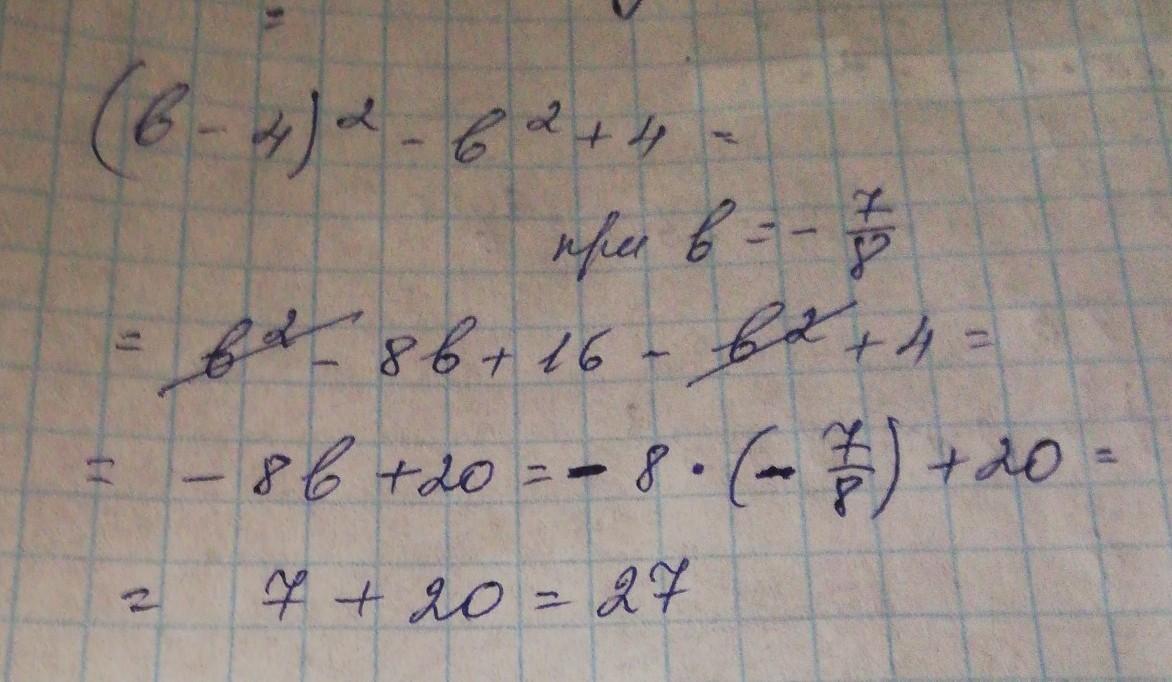 =
(b - 4)² - b² + 4 =
при b = - 7/8
= b² - 8b + 16 - b² + 4 =
= - 8b + 20 = - 8 · (- 7/8) + 20 =
= 7 + 20 = 27